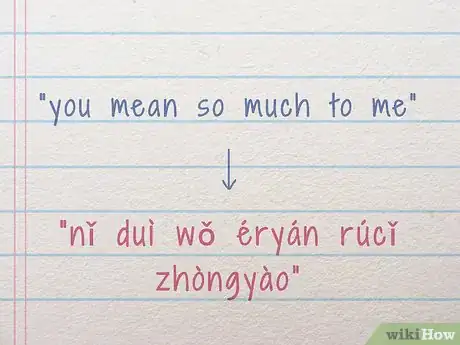 "you mean so much to me"
↓
"nǐ duì wǒ éryán rúcǐ
zhòngyào"
wikiHow